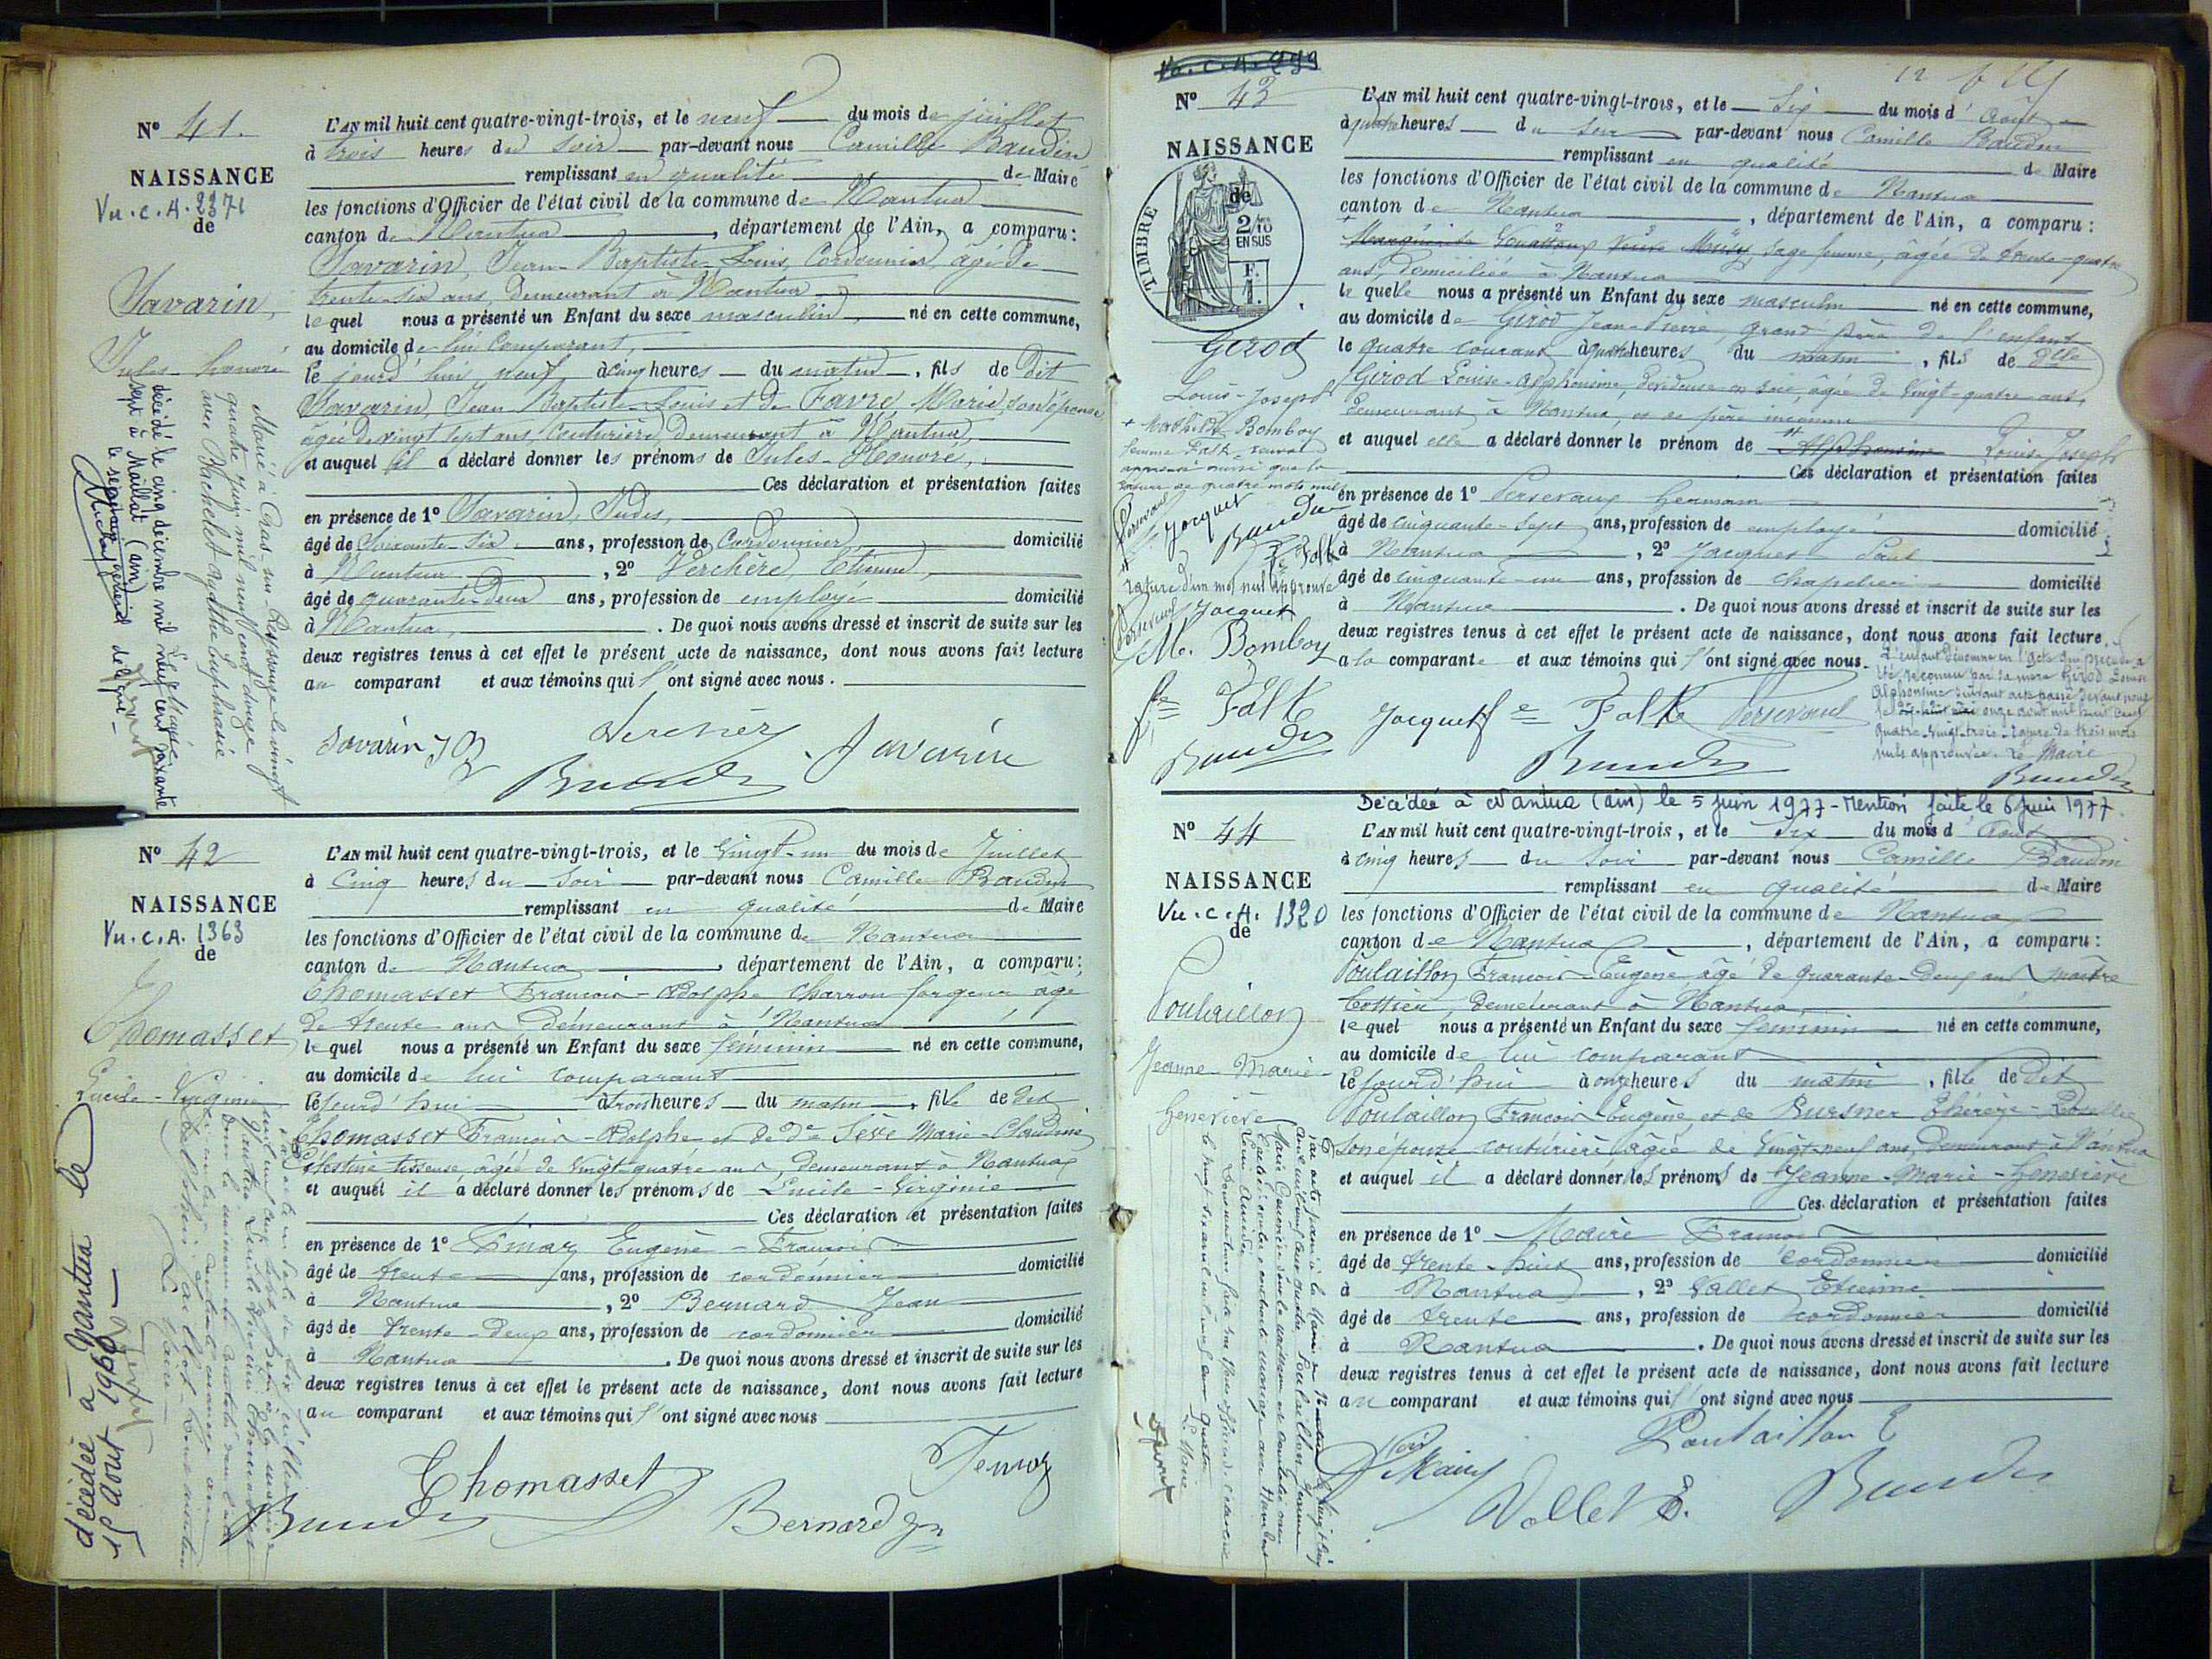 Nº 41.
NAISSANCE
Vu.c.A. 2371
de
Savarin,
Jules-honoré
L'AN mil huit cent quatre-vingt-trois, et le neuf du mois de juillet
à trois heures du soir par-devant nous Camille Baudin
remplissant en qualité de Maire
les fonctions d'Officier de l'état civil de la commune de Nantua
canton de Nantua, département de l'Ain, a comparu:
Savarin, Jean-Baptiste-Louis, Cordonnier, âgé de
trente-six ans, demeurant à Nantua
lequel nous a présenté un Enfant du sexe masculin, né en cette commune,
au domicile de lui comparant,
le jourd'hui, neuf, à cinq heures du matin, fils de dit
Savarin, Jean-Baptiste-Louis et de Favre, Marie, son épouse,
âgée de vingt sept ans, couturière, demeurant à Nantua,
et auquel il a déclaré donner les prénoms de Jules-Honoré,
Ces déclaration et présentation faites
en présence de 1º Savarin,
âgé de soixante-six ans, profession de Cordonnier domicilié
à Nantua, 2º Verchère, Etienne,
âgé de quarante-deux ans, profession de employé domicilié
à Nantua, . De quoi nous avons dressé et inscrit de suite sur les
deux registres tenus à cet effet le présent acte de naissance, dont nous avons fait lecture
au comparant et aux témoins qui l'ont signé avec nous.
Marié à Cras sur Reyssouze le vingt
quatre juin mil neuf cent douze
avec Bachelet Agathe Euphrasie
décédé le cinq décembre mil neuf cent soixante
sept à Maillat (Ain)
Savarin
Verchère
Savarin
Baudin
Nº 42
NAISSANCE
Vu.c.A. 1363
de
Thomasset
Lucile-Virginie
L'AN mil huit cent quatre-vingt-trois, et le vingt-un du mois de Juillet
à cinq heures du soir par-devant nous Camille Baudin
remplissant en qualité de Maire
les fonctions d'Officier de l'état civil de la commune de Nantua
canton de Nantua, département de l'Ain, a comparu:
Thomasset François-Adolphe charron forgeur âgé
de trente ans demeurant à Nantua
lequel nous a présenté un Enfant du sexe féminin né en cette commune,
au domicile de lui comparant
le jourd'hui à trois heures du matin, fille de dit
Thomasset François-Adolphe et de de Sève Marie-Claudine
Célestine tisseuse, âgée de vingt-quatre ans, demeurant à Nantua
et auquel il a déclaré donner les prénoms de Lucile-Virginie
Ces déclaration et présentation faites
en présence de 1º Eugène-François
âgé de trente ans, profession de cordonnier domicilié
à Nantua, 2º Bernard Jean
âgé de trente-deux ans, profession de cordonnier domicilié
à Nantua. De quoi nous avons dressé et inscrit de suite sur les
deux registres tenus à cet effet le présent acte de naissance, dont nous avons fait lecture
au comparant et aux témoins qui l'ont signé avec nous
décédée à Nantua le
15 Aout 1960
Thomasset
Baudin
Bernard
Nº 43
NAISSANCE
de
TIMBRE
2/10
EN SUS
F.
1.
Girod
Louis-Joseph
+ Mathilde Bomboy
femme Falk, renvoi
approuvé ainsi que la
rature de quatre mots nuls
Jacquet
Baudin
Falk
rature d'un mot nul approuvé
Jacquet
M. Bomboy
L'AN mil huit cent quatre-vingt-trois, et le six du mois d'Août
à quatre heures du soir par-devant nous Camille Baudin
remplissant en qualité de Maire
les fonctions d'Officier de l'état civil de la commune de Nantua
canton de Nantua, département de l'Ain, a comparu:
sage femme, âgée de trente-quatre
ans, domiciliée à Nantua
lequelle nous a présenté un Enfant du sexe masculin né en cette commune,
au domicile de Girod Jean-Pierre, grand père de l'enfant
le quatre courant à quatre heures du matin, fils de Dlle
Girod Louise-Alphonsine, dévideuse en soie, âgée de vingt-quatre ans,
demeurant à Nantua, et de père inconnu
et auquel elle a déclaré donner le prénom de Alphonsine Louis-Joseph
Ces déclaration et présentation faites
en présence de 1º Persevaux Germain
âgé de cinquante-sept ans, profession de employé domicilié
à Nantua, 2º Jacquet Paul
âgé de cinquante-un ans, profession de chapelier domicilié
à Nantua. De quoi nous avons dressé et inscrit de suite sur les
deux registres tenus à cet effet le présent acte de naissance, dont nous avons fait lecture
a la comparante et aux témoins qui l'ont signé avec nous.
L'enfant dénommé en l'acte qui précède a
été reconnu par sa mère Girod Louise
Alphonsine suivant acte passé devant nous
le onze août mil huit cent
quatre-vingt-trois. rature de trois mots
nuls approuvée. Le Maire
Baudin
fe Falk
Jacquet
fe Falk
Baudin
Baudin
Décédée à Nantua (Ain) le 5 juin 1977 - Mention faite le 6 Juin 1977.
Nº 44
NAISSANCE
Vu.c.A. 1320
de
Poulaillon
Jeanne-Marie-
Geneviève
L'AN mil huit cent quatre-vingt-trois, et le six du mois d'Août
à cinq heures du soir par-devant nous Camille Baudin
remplissant en qualité de Maire
les fonctions d'Officier de l'état civil de la commune de Nantua
canton de Nantua, département de l'Ain, a comparu:
Poulaillon François-Eugène âgé de quarante-deux ans maître
bottier, demeurant à Nantua,
lequel nous a présenté un Enfant du sexe féminin né en cette commune,
au domicile de lui comparant
le jourd'hui à onze heures du matin, fille de dit
Poulaillon François-Eugène, et de Bursner Thérèse-Rosalie
son épouse couturière âgée de vingt-neuf ans, demeurant à Nantua
et auquel il a déclaré donner les prénoms de Jeanne-Marie-Geneviève
Ces déclaration et présentation faites
en présence de 1º Maire François
âgé de trente-huit ans, profession de cordonnier domicilié
à Nantua, 2º Vallet Etienne
âgé de trente ans, profession de cordonnier domicilié
à Nantua. De quoi nous avons dressé et inscrit de suite sur les
deux registres tenus à cet effet le présent acte de naissance, dont nous avons fait lecture
au comparant et aux témoins qui l'ont signé avec nous
Poulaillon E
Vallet E.
Baudin